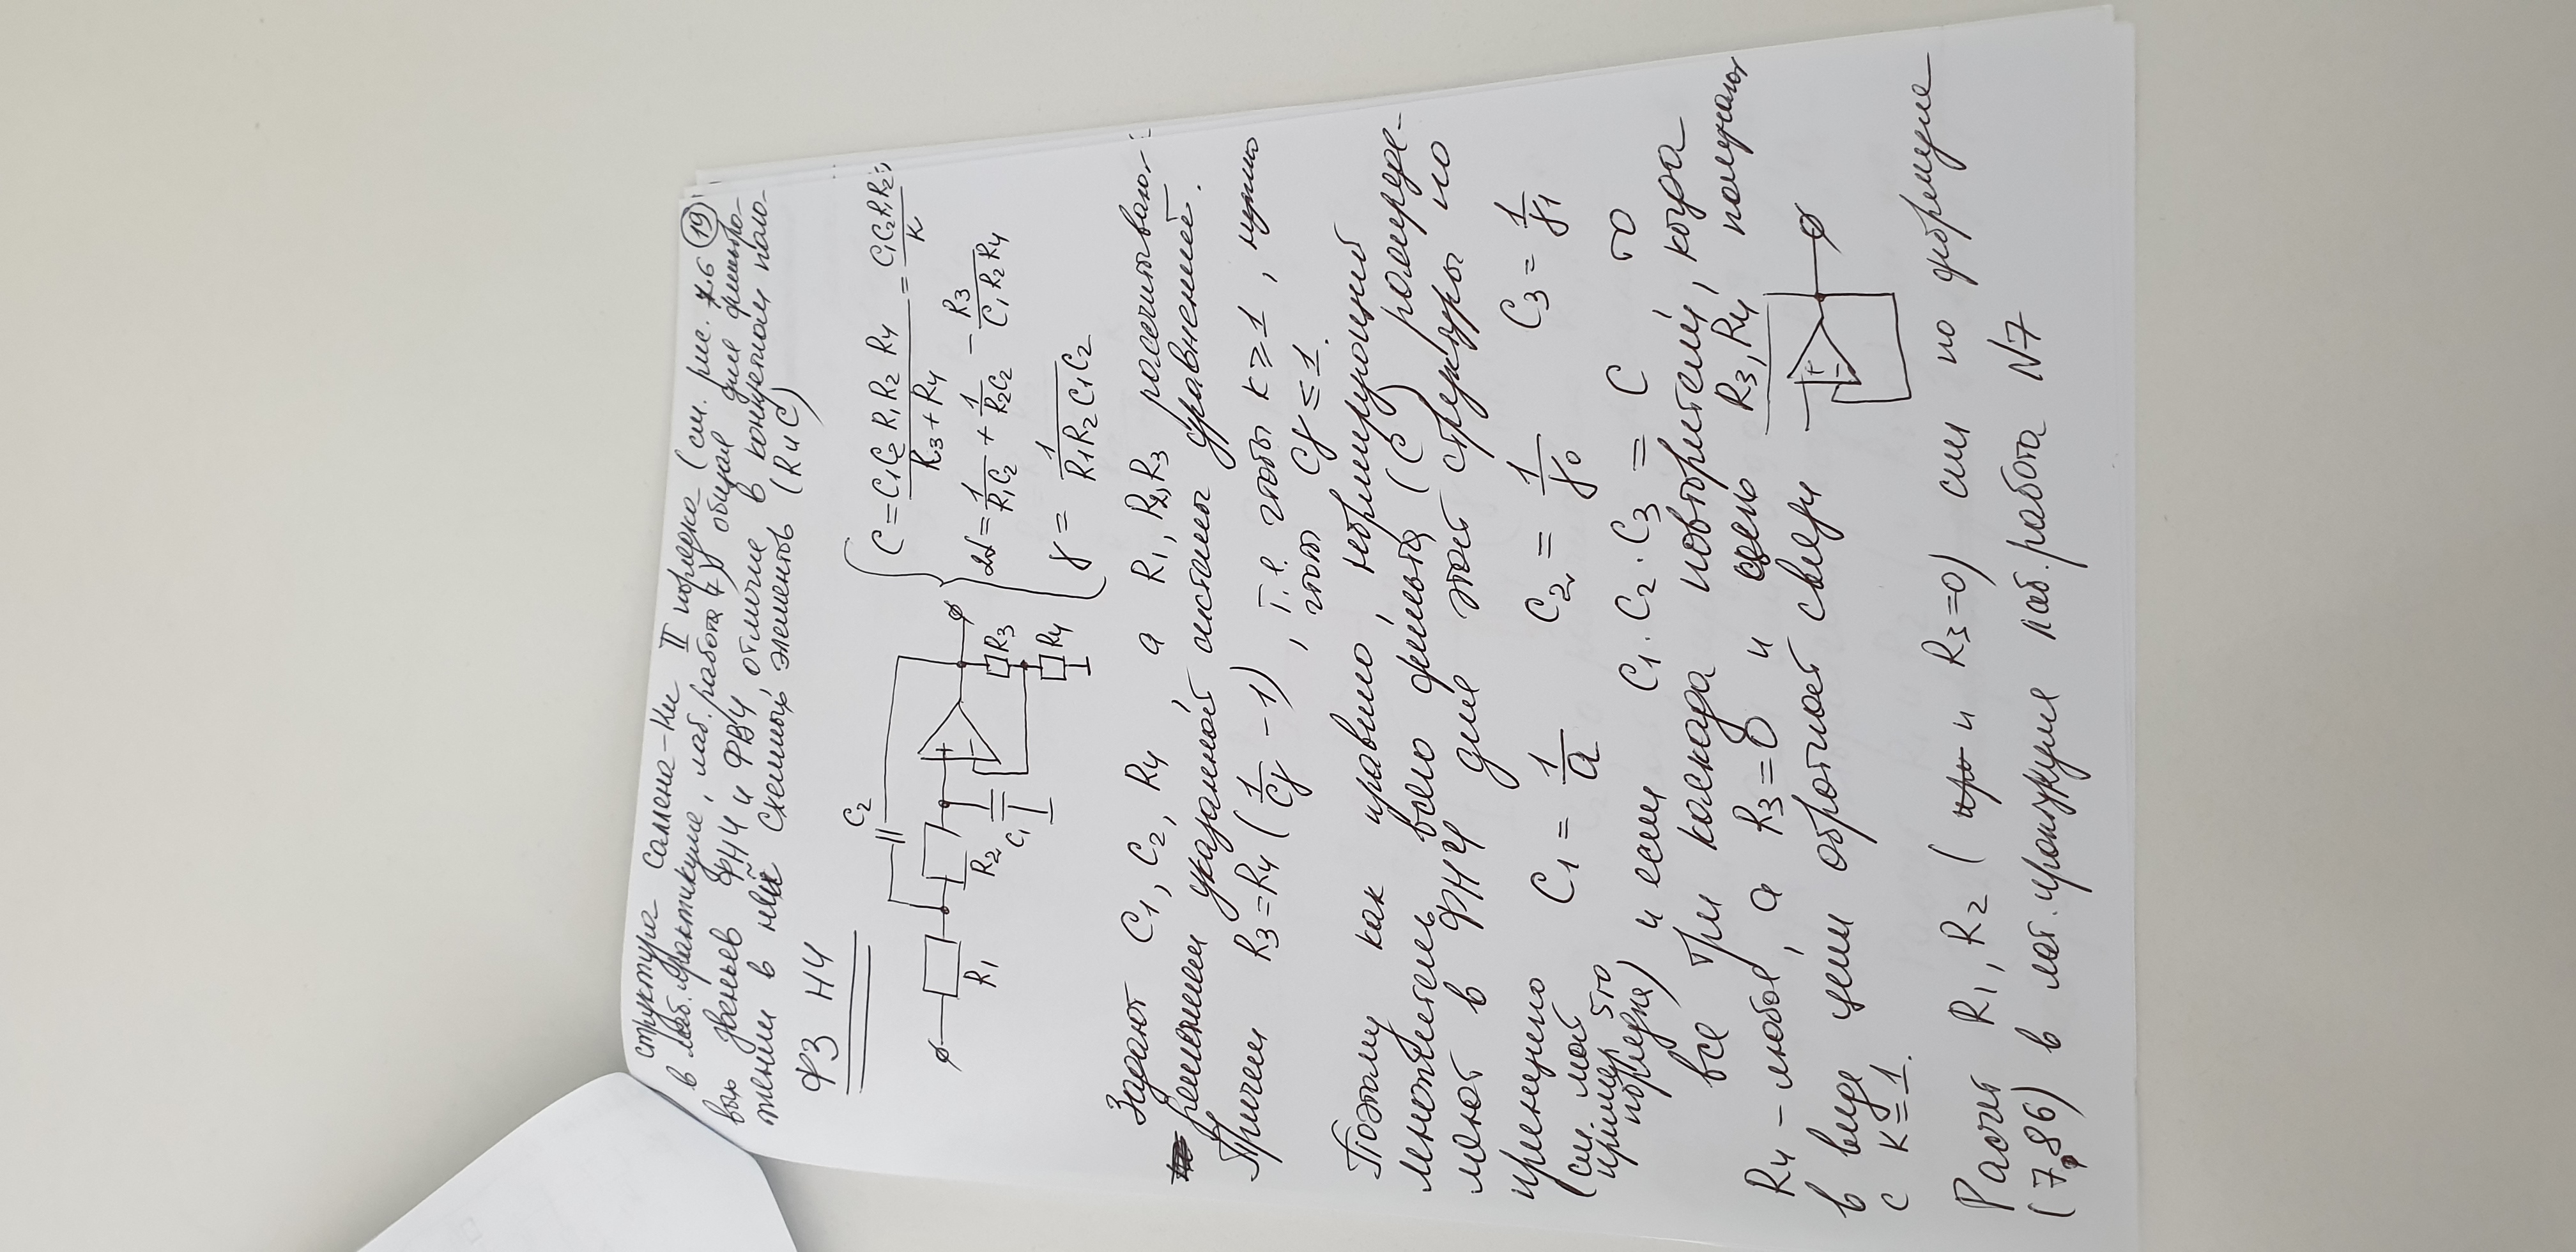 структура Саллена-Ки II порядка (см. рис. 7.6 19
в лаб. практикуме, лаб. работа 7) общая для фильтро-
вых звеньев ФНЧ и ФВЧ, отличие в конкретном поло-
жении в ней схемных элементов (R и C)
ФЗ НЧ
C2
R1 R2 C1 + - R3 R4
C = C1C2 R1R2 R4 / (R3 + R4) = C1C2R1R2 / K
2α = 1/(R1C2) + 1/(R2C2) - R3/(C1R2R4)
γ = 1/(R1R2C1C2)
Задают C1, C2, R4, а R1, R2, R3 рассчитывают
решением указанной системы уравнений.
Причем R3 = R4 (1/(Cγ) - 1), т.е. чтобы K ≥ 1, нужно
чтобы Cγ ≤ 1.
Поэтому как правило, нормирующий
множитель всего фильтра (C) распреде-
ляют в ФНЧ для этой структуры по
принципу C1 = 1/a C2 = 1/γ0 C3 = 1/γ1
(см. мой
пример 5го
порядка) и если C1 · C2 · C3 = C, то
все три каскада повторители, когда
R4 - любое, а R3 = 0 и цепь R3, R4 получают
в виде цепи обратной связи + -
с K = 1.
Расчет R1, R2 (и R3 = 0) см по формуле
(7.86) в лаб. практикуме лаб. работа N7